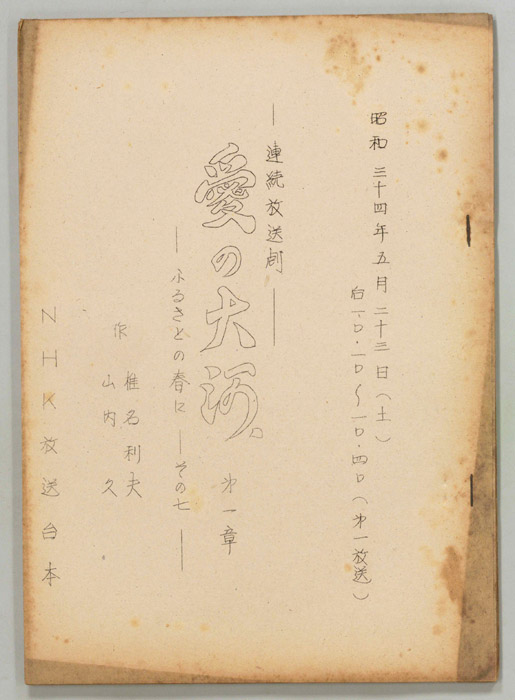 昭和三十四年五月二十三日(土)
后一〇・一〇〜一〇・四〇(第一放送)
―連続放送劇―
愛の大河 第一章
―ふるさとの春に―その七―
作 椎名利夫
山内久
NHK放送台本